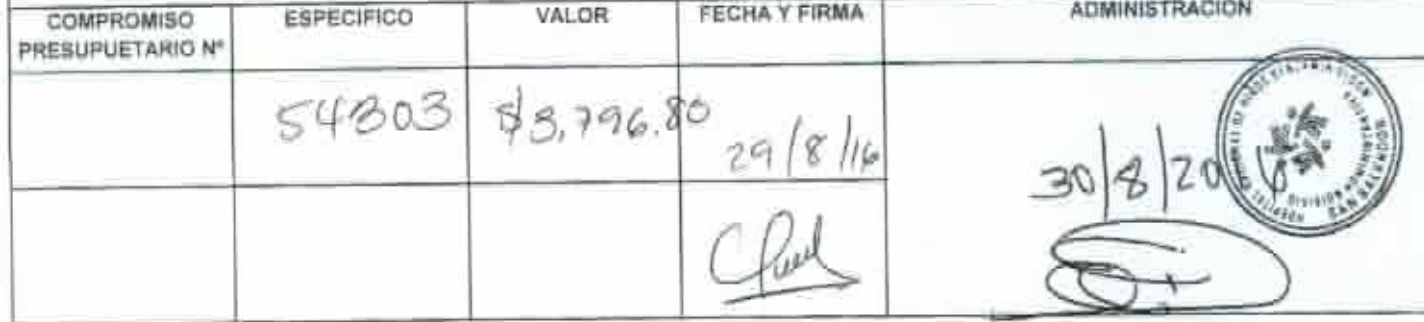 COMPROMISO
PRESUPUETARIO Nº
ESPECIFICO
VALOR
FECHA Y FIRMA
ADMINISTRACION
54303
$3,796.80
29/8/16
30/8/20
HOSPITAL
SAN SALVADOR